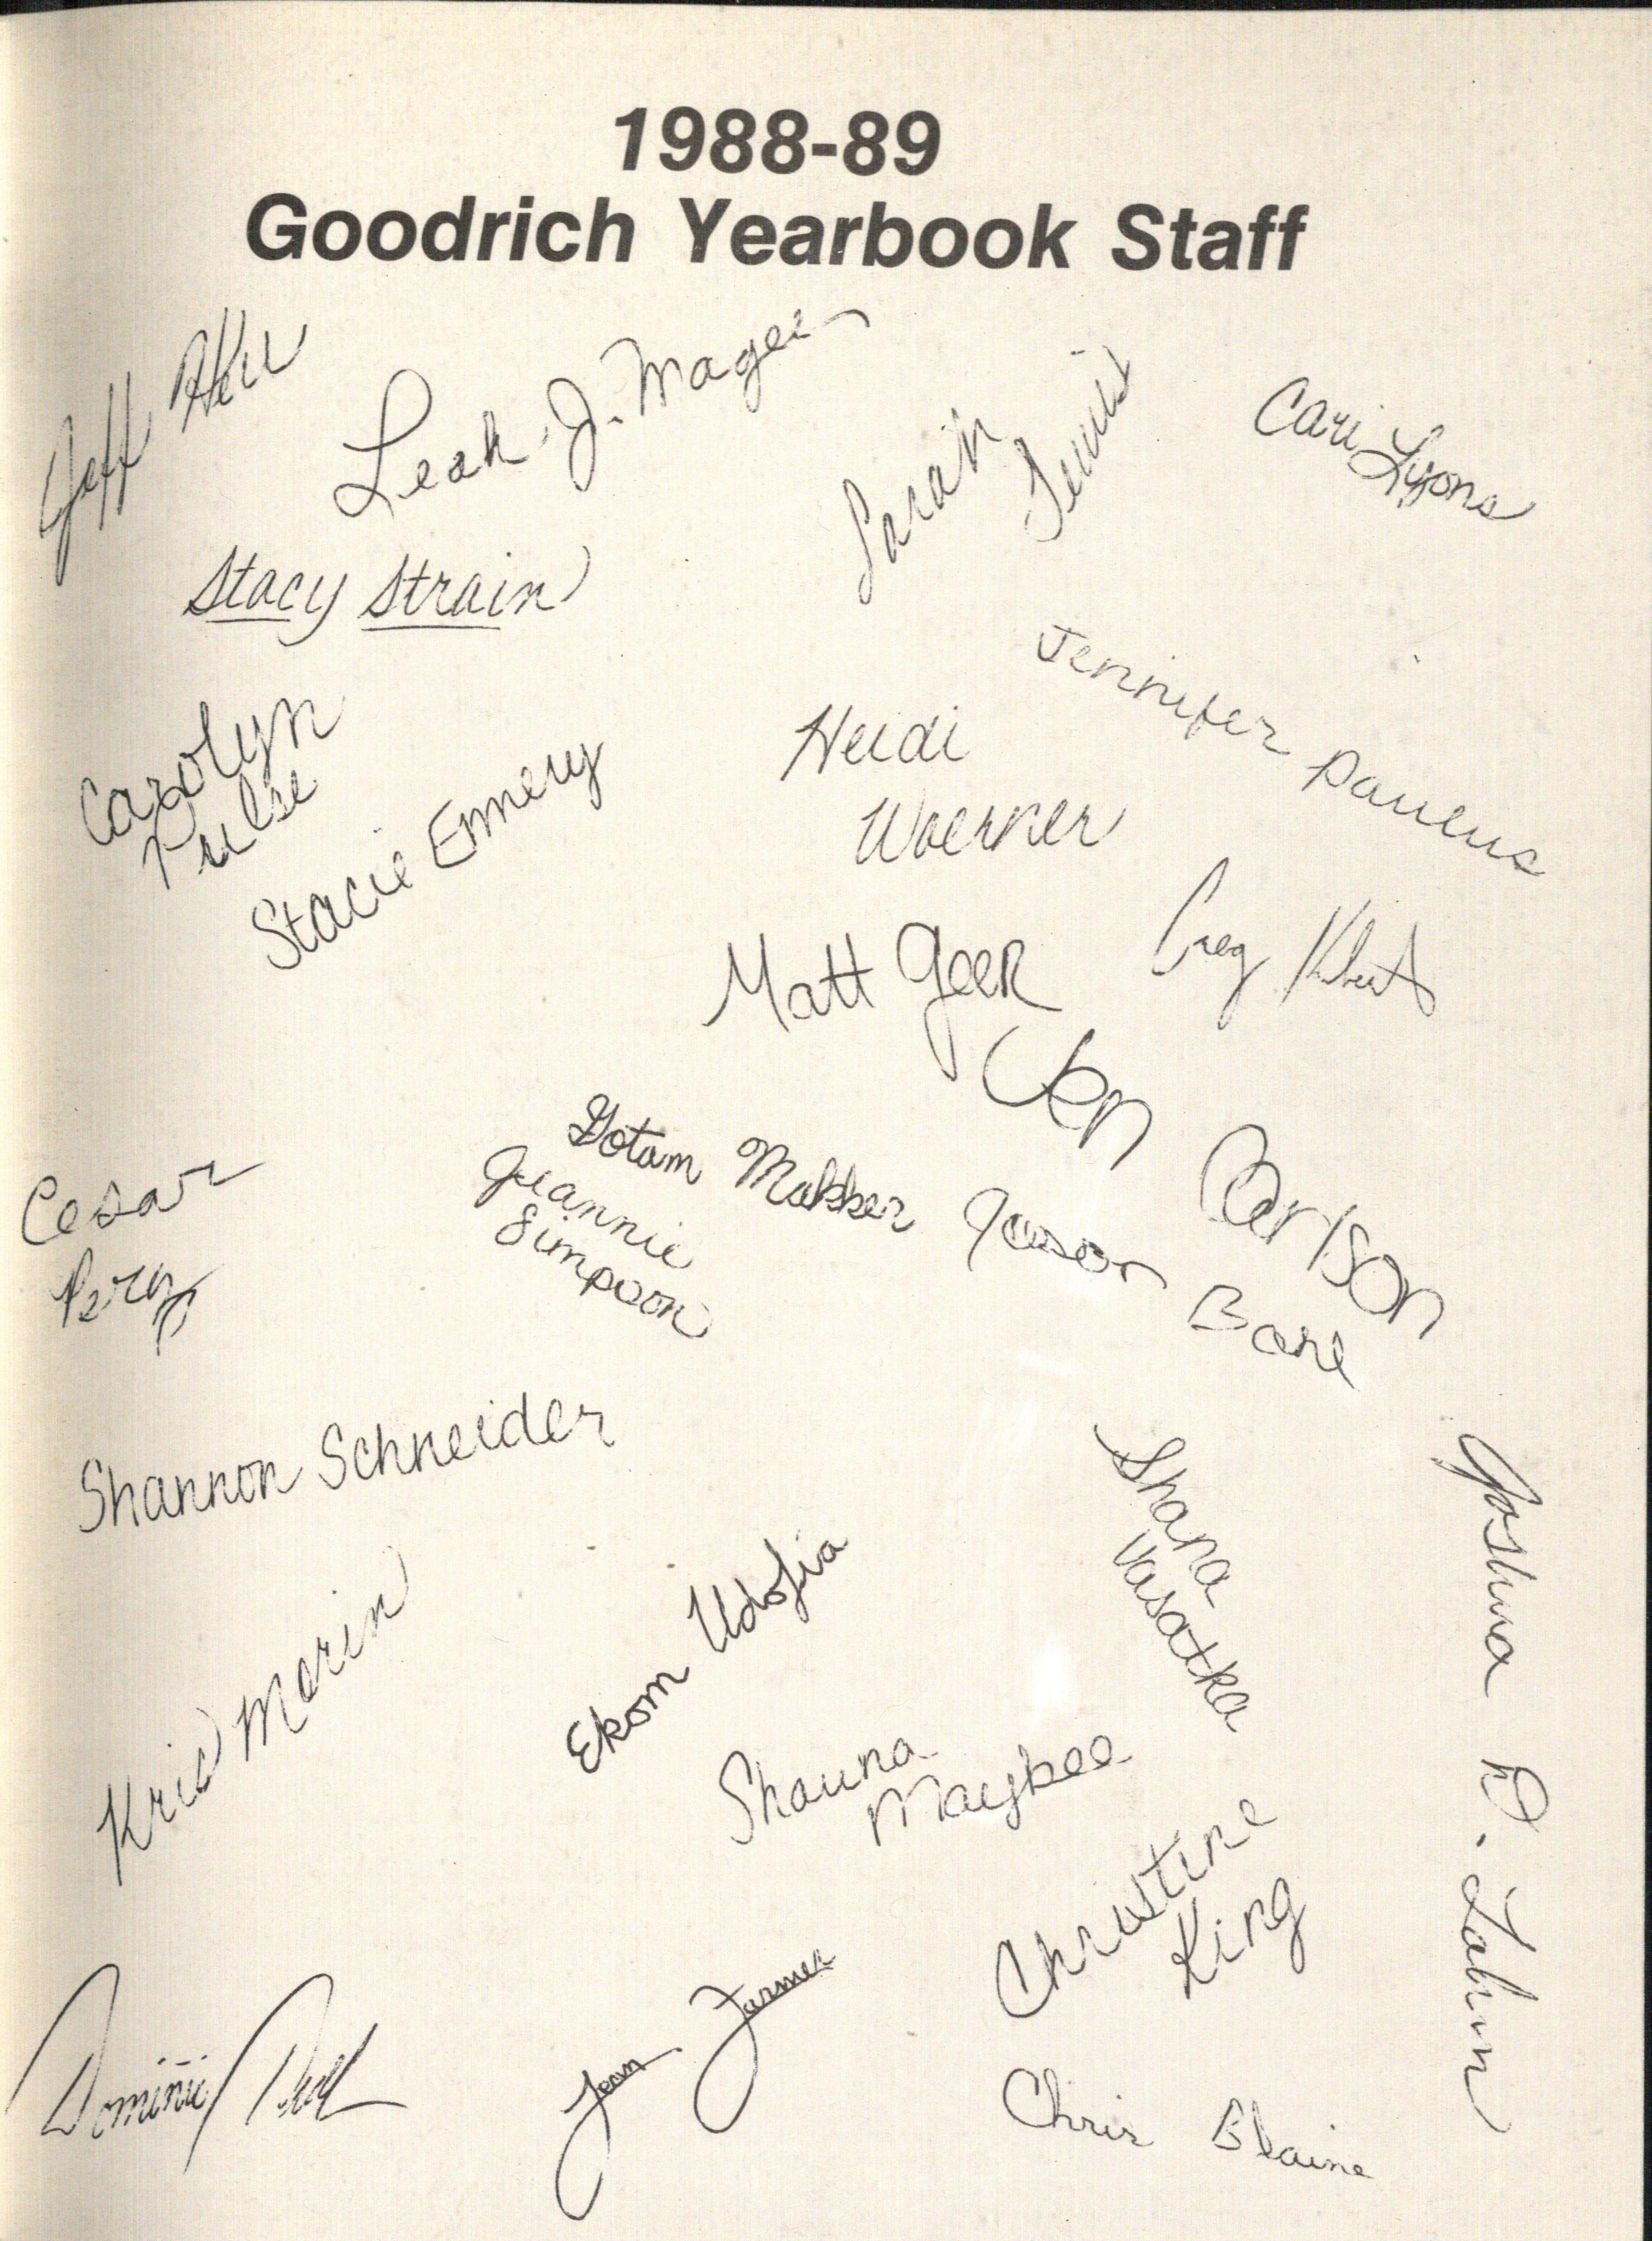 1988-89
Goodrich Yearbook Staff
Jeff
Leah J. Magee
Sarah
Cari Lyons
Stacy Strain
Jennifer Paulus
Carolyn
Pulse
Stacie Emmery
Heidi
Woerner
Matt Geer
Greg
Jen Carlson
Gotam Makker
Jeannie
Simpson
Jason Bare
Cesar
Perez
Shannon Schneider
Shana
Vasatka
Joshua D.
Kris Morin
Ekom Udofia
Shauna
Maybee
Christine
King
Dominic
Jenn Farmer
Chris Blaine